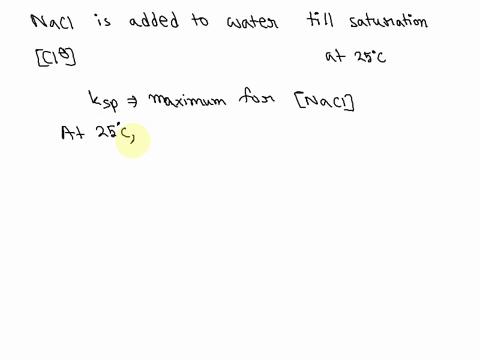 NaCl is added to water till saturation
[Cl⊖] at 25°C
ksp ⇒ maximum for [NaCl]
At 25°C,